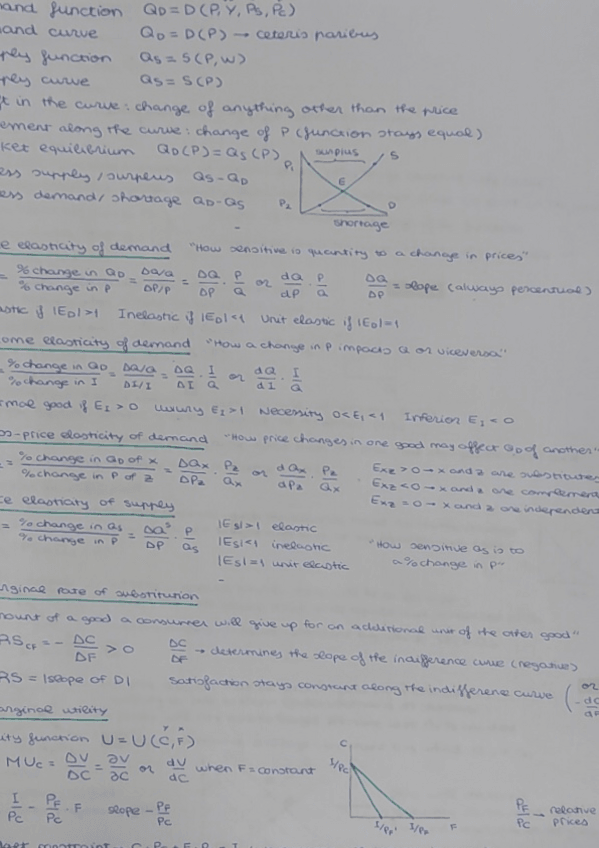 and function QD = D(P, Y, PS, PC)
and curve QD = D(P) → ceteris paribus
ply function QS = S(P, W)
ply curve QS = S(P)
t in the curve: change of anything other than the price
ement along the curve: change of P (function stays equal)
ket equilibrium QD(P) = QS(P)
ess supply/surplus QS - QD
ess demand/shortage QD - QS
P1 surplus S
E
P2 D
shortage
e elasticity of demand "How sensitive is quantity to a change in prices"
= % change in QD / % change in P = ΔQ/Q / ΔP/P = ΔQ/ΔP · P/Q or dQ/dP · P/Q ΔQ/ΔP = slope (always percentual)
astic if |ED|>1 Inelastic if |ED|<1 Unit elastic if |ED|=1
ome elasticity of demand "How a change in P impacts Q or viceversa"
= % change in QD / % change in I = ΔQ/Q / ΔI/I = ΔQ/ΔI · I/Q or dQ/dI · I/Q
rmal good if EI > 0 Luxury EI > 1 Necessity 0<EI<1 Inferior EI < 0
oss-price elasticity of demand "How price changes in one good may affect QD of another"
= % change in QD of x / % change in P of z = ΔQx/ΔPz · Pz/Qx or dQx/dPz · Pz/Qx . Exz > 0 → x and z are substitutes
Exz < 0 → x and z are complement
Exz = 0 → x and z are independent
ce elasticity of supply
= % change in QS / % change in P = ΔQS/ΔP · P/QS
|ES|>1 elastic
|ES|<1 inelastic "How sensitive QS is to
|ES|=1 unit elastic a % change in P"
arginal rate of substitution
mount of a good a consumer will give up for an additional unit of the other good"
RSCF = - ΔC/ΔF > 0 ΔC/ΔF → determines the slope of the indifference curve (negative)
RS = |slope of DI satisfaction stays constant along the indifference curve ( or - dC/dF
arginal utility
ity function U = U(C, F)
MUC = ΔU/ΔC = ∂U/∂C or dU/dC when F = constant
I/PC - PF/PC · F slope - PF/PC
C
I/PC
I/PF' I/PF F
PF/PC → relative prices